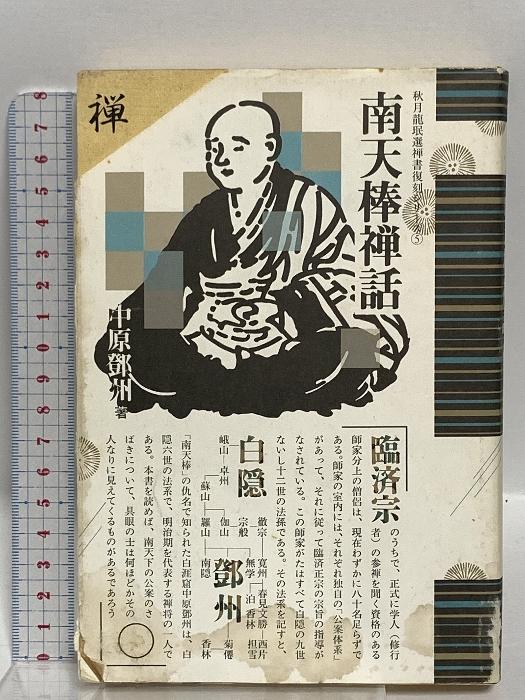 禅
秋月龍珉選禅書復刻シリーズ⑤
南天棒禅話
中原鄧州 著
臨済宗のうちで、正式に学人（修行
者）の参禅を聞く資格のある
師家分上の僧侶は、現在わずかに八十名足らずで
ある。師家の室内には、それぞれ独自の「公案体系」
があって、それに従って臨済正宗の宗旨の指導が
なされている。この師家がたはすべて白隠の九世
ないし十二世の法孫である。その法系を記すと、
白隠
峨山
卓州
蘇山
羅山
伽山
宗般
鄧州
南隠
徹宗
無学
寛州
春見文勝
西片担雪
泊香林
菊僊
香林
「南天棒」の仇名で知られた白涯窟中原鄧州は、白
隠六世の法系で、明治期を代表する禅将の一人で
ある。本書を読めば、南天下の公案のさ
ばきについて、具眼の士は何ほどかその
人なりに見えてくるものがあるであろう
8
7
6
5
4
3
2
1
0
9
8
7
6
5
4
3
2
1
0